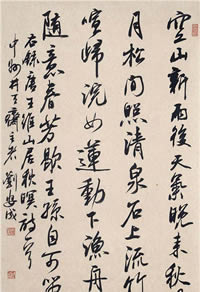 空山新雨後天氣晚來秋
月松間照清泉石上流竹
喧歸浣女蓮動下漁舟
隨意春芳歇王孫自可留
右錄唐王維山居秋暝詩一首
中州